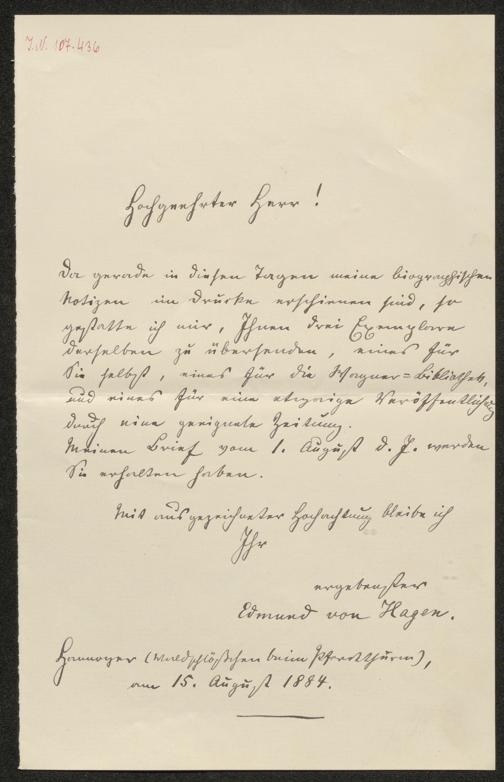 I.N. 107.436
Hochgeehrter Herr!
Da gerade in diesen Tagen meine biographischen
Notizen im Drucke erschienen sind, so
gestatte ich mir, Ihnen drei Exemplare
derselben zu übersenden, eines für
Sie selbst, eines für die Wagner=Bibliothek,
und eines für eine etwaige Veröffentlichung
durch eine geeignete Zeitung.
Meinen Brief vom 1. August d. J. werden
Sie erhalten haben.
Mit ausgezeichneter Hochachtung bleibe ich
Ihr
ergebenster
Edmund von Hagen.
Hannover (Waldschlößchen beim Pferdethurm),
am 15. August 1884.